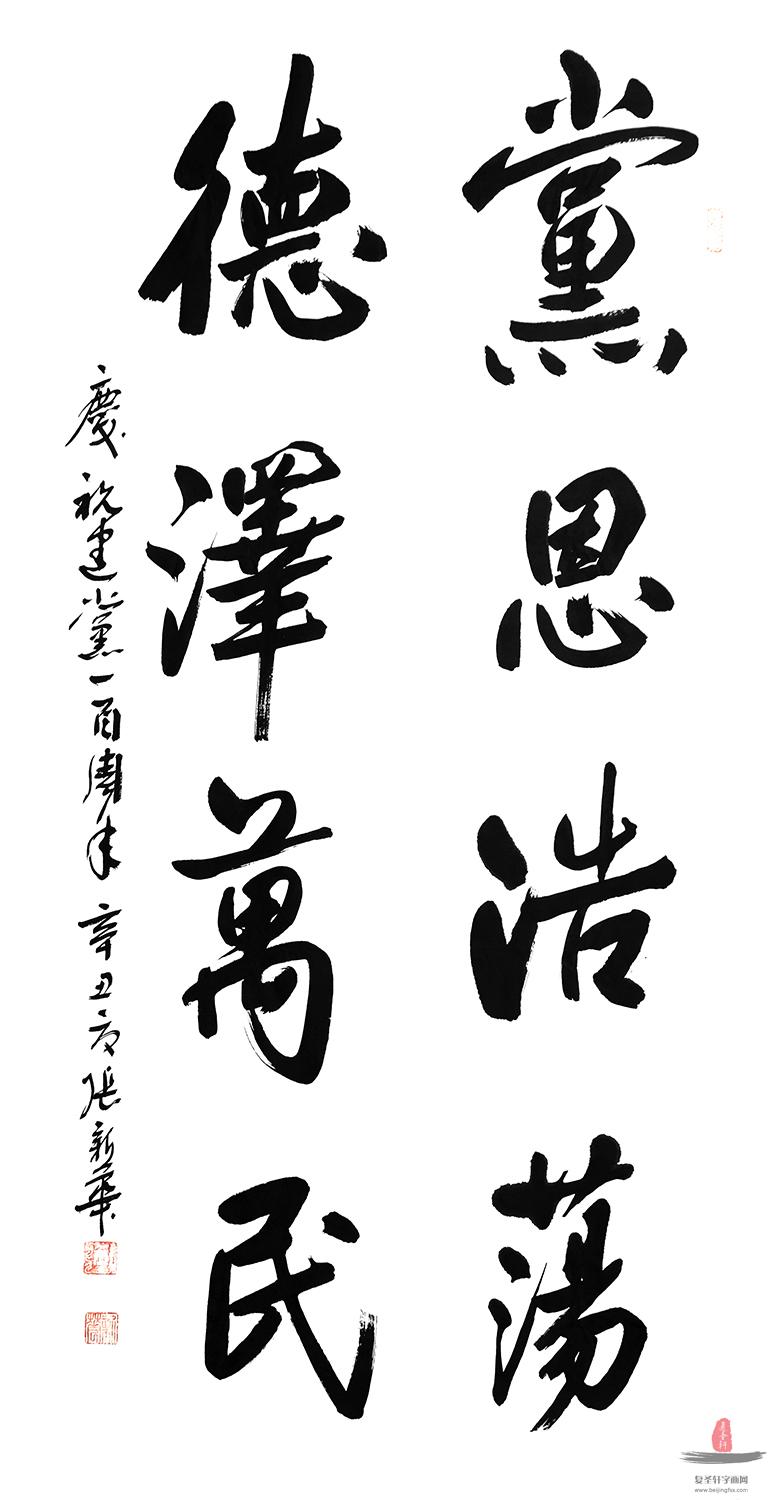 黨恩浩蕩
德澤萬民
慶祝建黨一百周年辛丑夏張新華
复圣轩字画网
www.beijingfsx.com